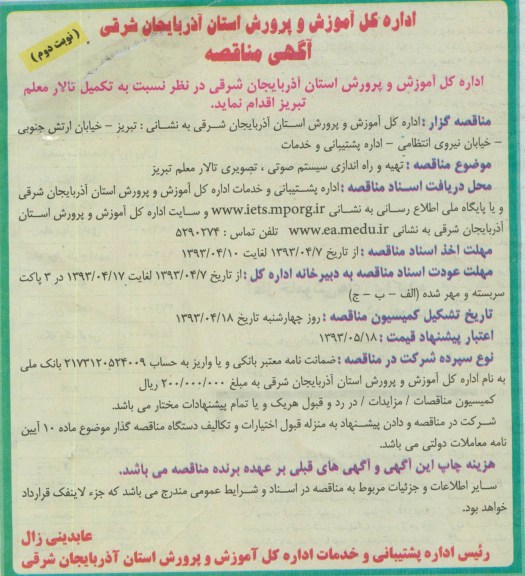 اداره کل آموزش و پرورش استان آذربایجان شرقی
آگهی مناقصه
(نوبت دوم)
اداره کل آموزش و پرورش استان آذربایجان شرقی در نظر نسبت به تکمیل تالار معلم
تبریز اقدام نماید.
مناقصه گزار : اداره کل آموزش و پرورش استان آذربایجان شرقی به نشانی : تبریز - خیابان ارتش جنوبی
- خیابان نیروی انتظامی - اداره پشتیبانی و خدمات
موضوع مناقصه : تهیه و راه اندازی سیستم صوتی ، تصویری تالار معلم تبریز
محل دریافت اسناد مناقصه : اداره پشتیبانی و خدمات اداره کل آموزش و پرورش استان آذربایجان شرقی
و یا پایگاه ملی اطلاع رسانی به نشانی www.iets.mporg.ir و سایت اداره کل آموزش و پرورش استان
آذربایجان شرقی به نشانی www.ea.medu.ir تلفن تماس : ۵۲۹۰۲۷۴
مهلت اخذ اسناد مناقصه : از تاریخ ۱۳۹۳/۰۴/۷ لغایت ۱۳۹۳/۰۴/۱۰
مهلت عودت اسناد مناقصه به دبیرخانه اداره کل : از تاریخ ۱۳۹۳/۰۴/۷ لغایت ۱۳۹۳/۰۴/۱۷ در ۳ پاکت
سربسته و مهر شده (الف - ب - ج)
تاریخ تشکیل کمیسیون مناقصه : روز چهارشنبه تاریخ ۱۳۹۳/۰۴/۱۸
اعتبار پیشنهاد قیمت : ۱۳۹۳/۰۵/۱۸
نوع سپرده شرکت در مناقصه : ضمانت نامه معتبر بانکی و یا واریز به حساب ۲۱۷۳۱۲۰۵۲۴۰۰۹ بانک ملی
به نام اداره کل آموزش و پرورش استان آذربایجان شرقی به مبلغ ۲۰۰/۰۰۰/۰۰۰ ریال
کمیسیون مناقصات / مزایدات / در رد و قبول هریک و یا تمام پیشنهادات مختار می باشد.
شرکت در مناقصه و دادن پیشنهاد به منزله قبول اختیارات و تکالیف دستگاه مناقصه گذار موضوع ماده ۱۰ آیین
نامه معاملات دولتی می باشد.
هزینه چاپ این آگهی و آگهی های قبلی بر عهده برنده مناقصه می باشد.
سایر اطلاعات و جزئیات مربوط به مناقصه در اسناد و شرایط عمومی مندرج می باشد که جزء لاینفک قرارداد
خواهد بود.
عابدینی زال
رئیس اداره پشتیبانی و خدمات اداره کل آموزش و پرورش استان آذربایجان شرقی